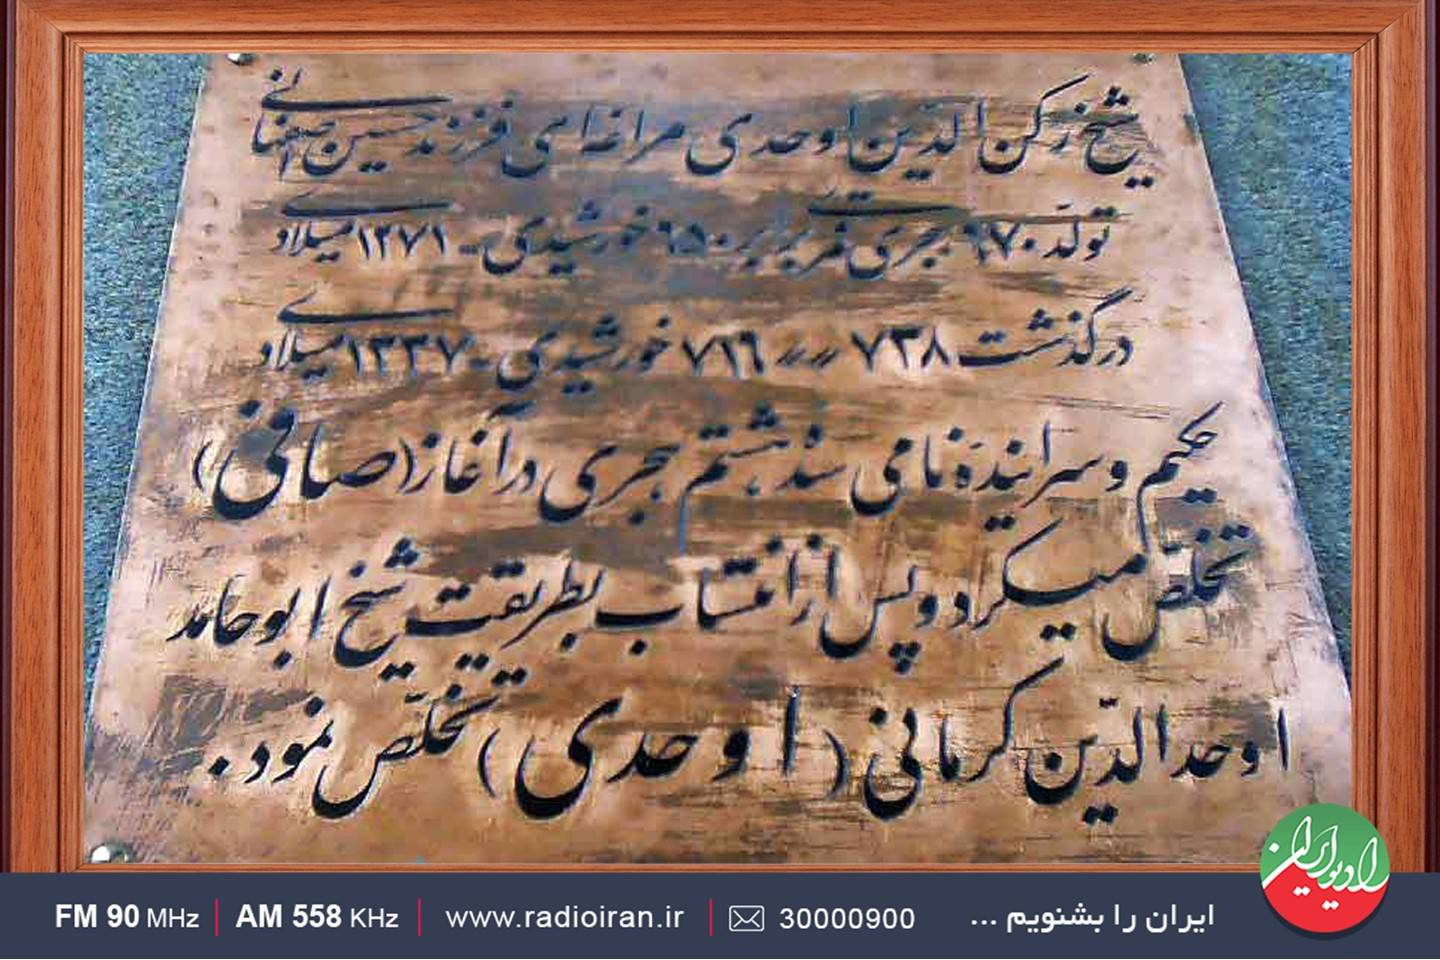 شیخ رکن الدّین اوحدی مراغه‌ای فرزند حسین اصفهانی
تولّد ۶۷۰ هجری قمری برابر ۶۵۰ خورشیدی - ۱۲۷۱ میلادی
درگذشت ۷۳۸ " " ۷۱۶ خورشیدی - ۱۳۳۷ میلادی
حکیم و سرایندهٔ نامی سده هشتم هجری در آغاز (صافی)
تخلّص میکرد و پس از انتساب بطریقت شیخ ابو حامد
اوحدالدّین کرمانی (اوحدی) تخلّص نمود.
رادیو ایران
FM 90 MHz | AM 558 KHz | www.radioiran.ir | 30000900 ایران را بشنویم ...